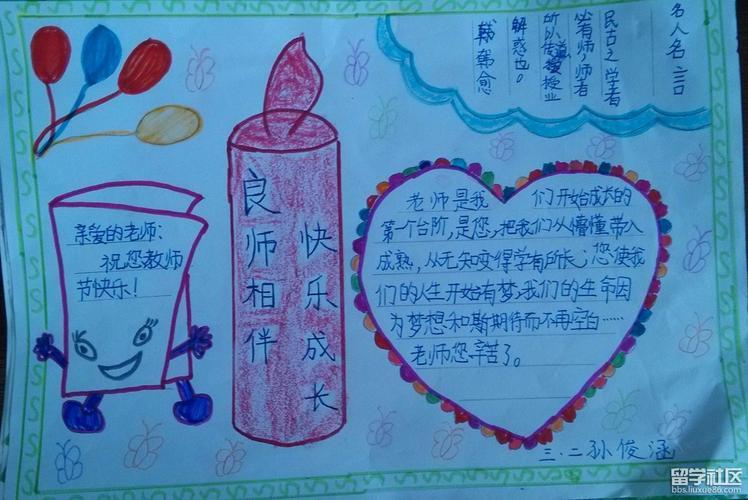 名人名言
民古之学者
必有师,师者
所以传道授业
解惑也。
韩韩愈
亲爱的老师:
祝您教师
节快乐!
良师相伴
快乐成长
老师是我们开始成长的
第一个台阶,是您,把我们从懵懂带入
成熟,从无知变得学有所长;您使我
们的人生开始有梦,我们的生命因
为梦想和斯期待而不再空白……
老师您辛苦了。
三.二孙俊涵
留学社区
bbs.liuxue86.com